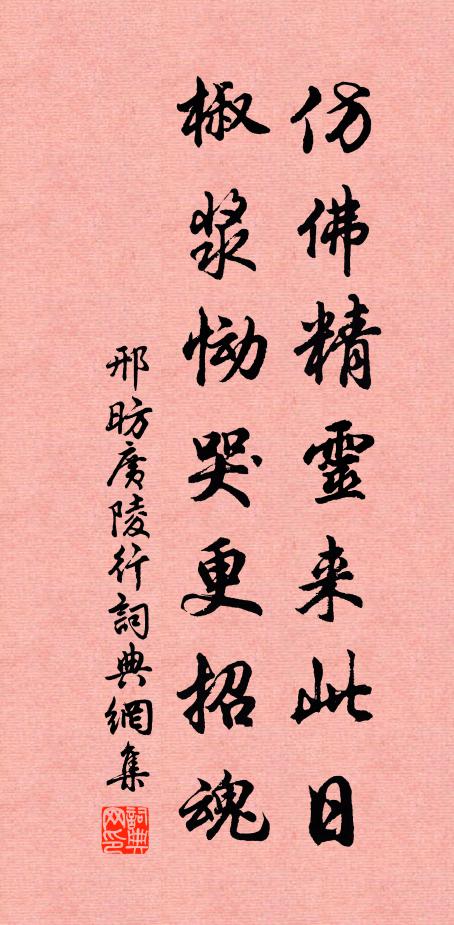 仿佛精靈来此日
椒漿恸哭更招魂
邢昉廣陵行詞典網集
詞典网印